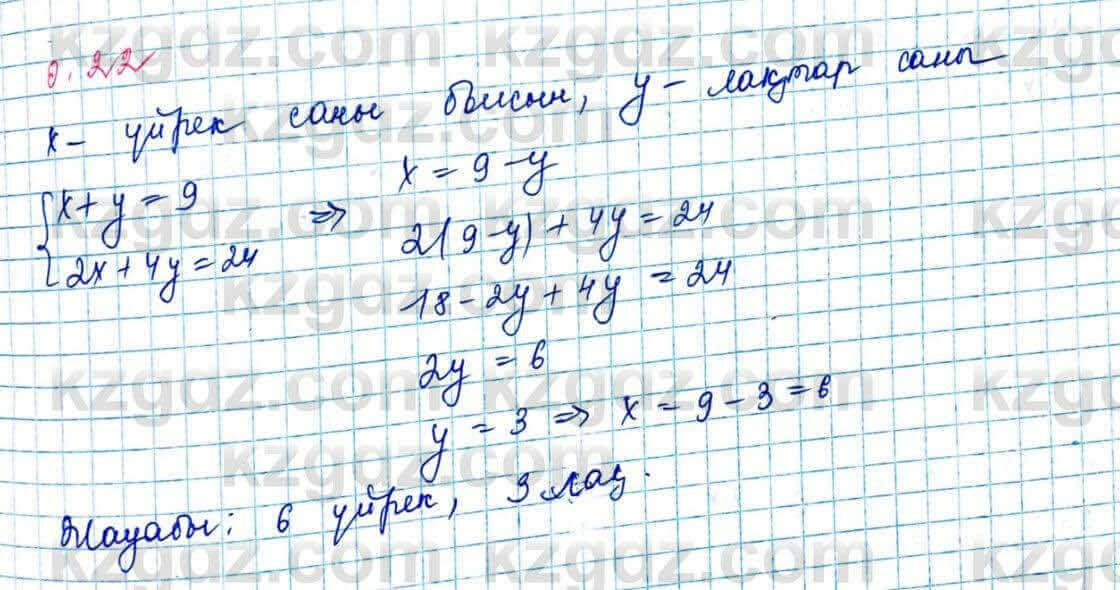 0.22
x - үйрек саны болсын, y - лақтар саны
{x + y = 9
2x + 4y = 24
=>
x = 9 - y
2(9 - y) + 4y = 24
18 - 2y + 4y = 24
2y = 6
y = 3 => x = 9 - 3 = 6
Жауабы: 6 үйрек, 3 лақ.
kzgdz.com